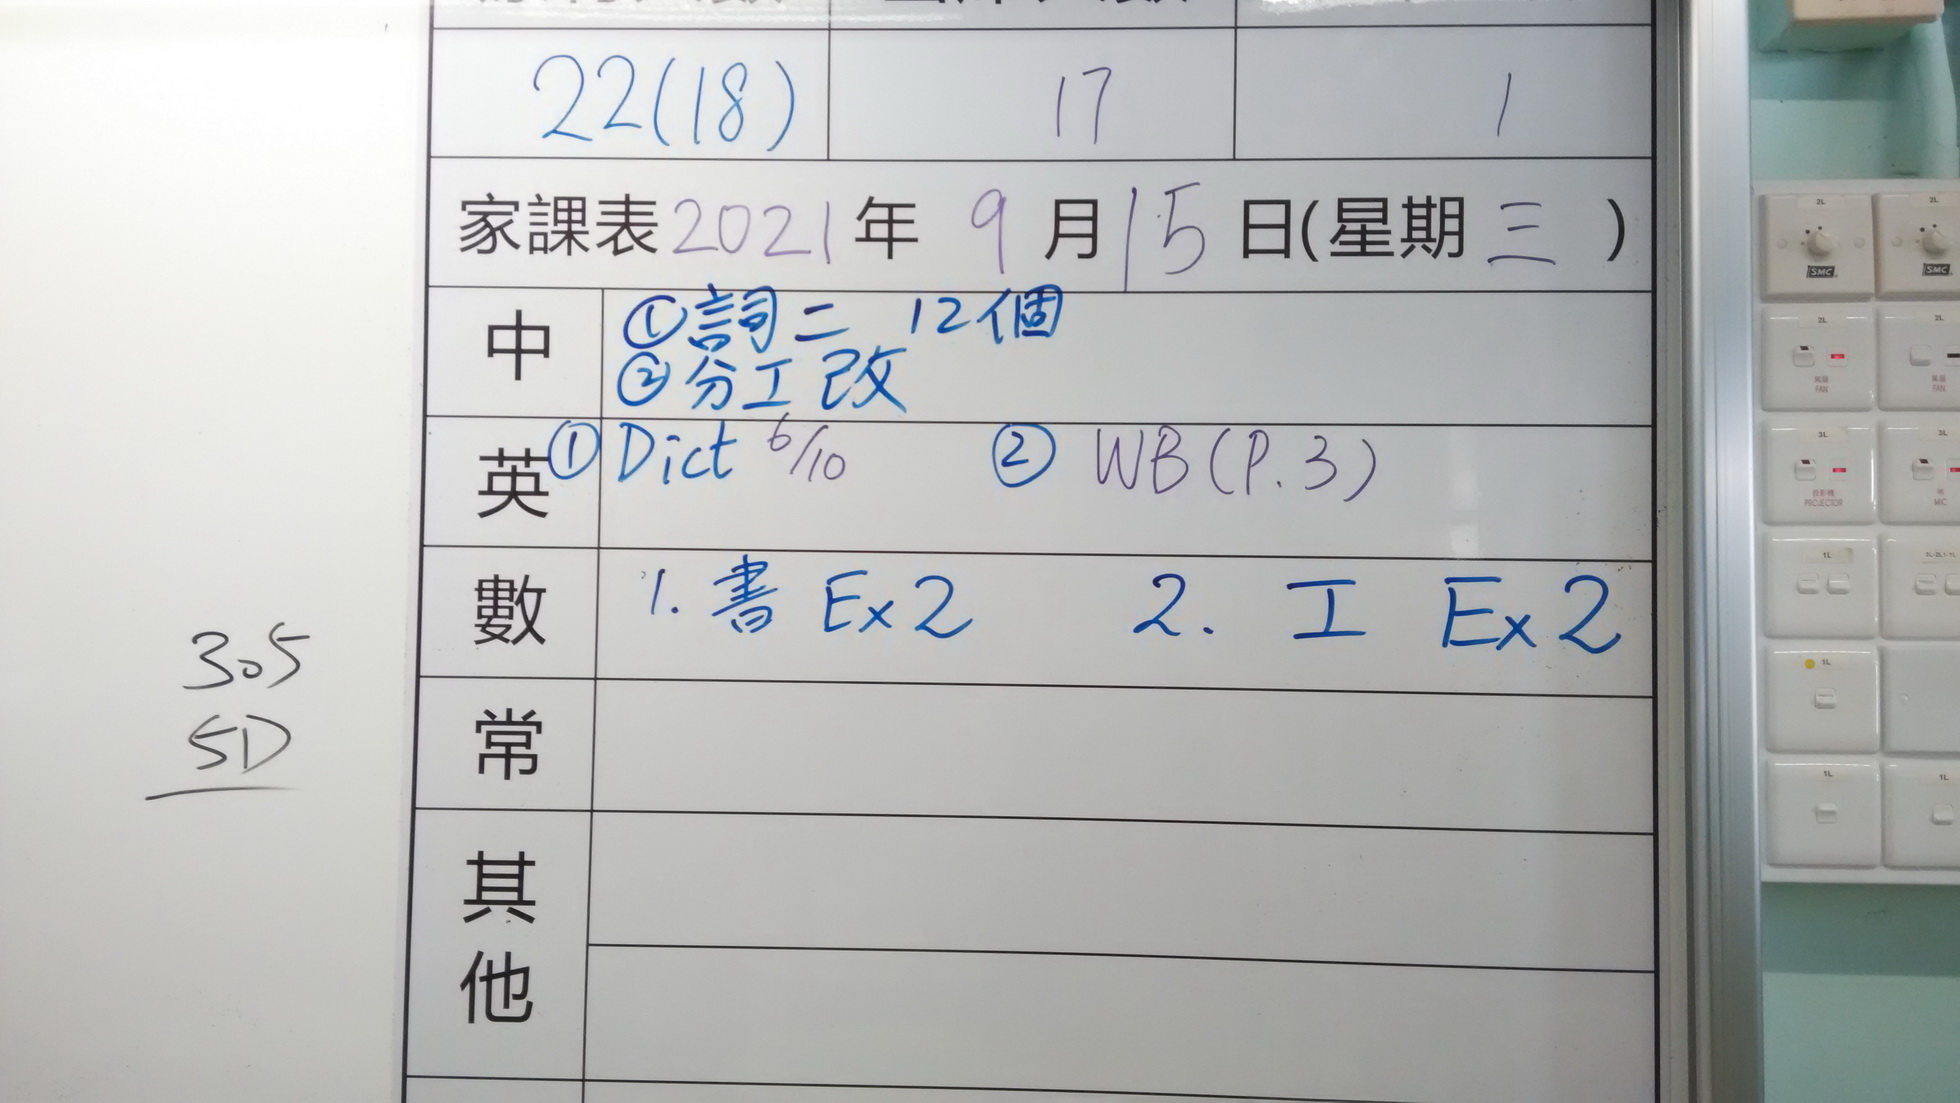 22(18) 17 1
家課表2021年 9月15日(星期三)
中 ①詞二 12個
②分工改
英 ①Dict 6/10 ② WB(P.3)
數 1. 書 Ex2 2. 工 Ex2
常
其他
305
5D
2L 2L
SMC SMC
2L 2L
風扇 風扇
FAN FAN
3L 3L
投影機
PROJECTOR MIC
1L
1L
1L 1L